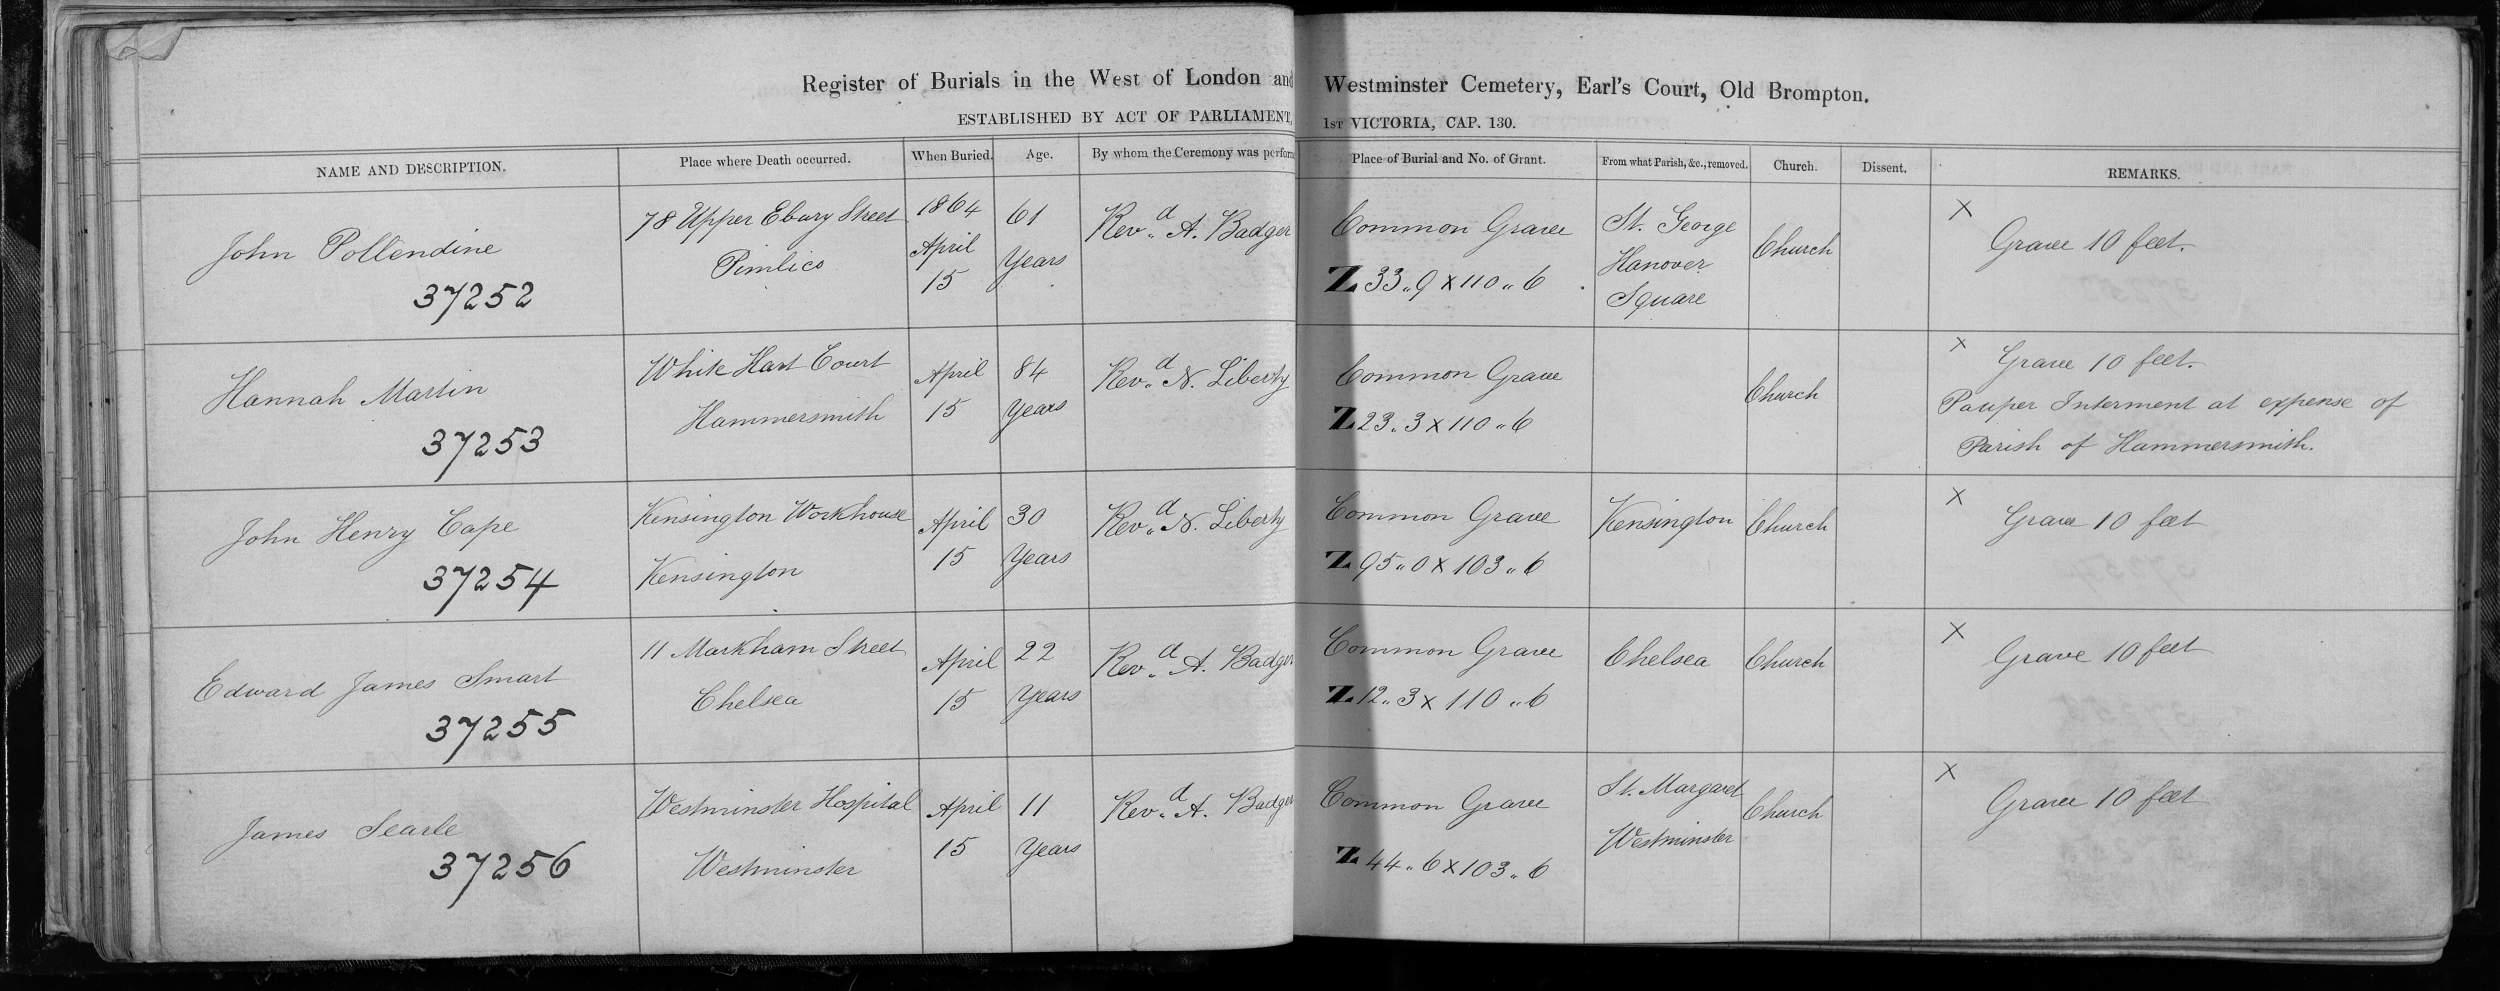 Register of Burials in the West of London and Westminster Cemetery, Earl's Court, Old Brompton.
ESTABLISHED BY ACT OF PARLIAMENT, 1ST VICTORIA, CAP. 130.
NAME AND DESCRIPTION. Place where Death occurred. When Buried. Age. By whom the Ceremony was perform Place of Burial and No. of Grant. From what Parish, &c., removed. Church. Dissent. REMARKS.
John Pollendine
37252
78 Upper Ebury Street
Pimlico
1864
April
15
61
Years
Revd. A. Badger
Common Grave
Z 33 " 9 x 110 " 6
St. George
Hanover
Square
Church
X
Grave 10 feet.
Hannah Martin
37253
White Hart Court
Hammersmith
April
15
84
Years
Revd. N. Liberty
Common Grave
Z 23 " 3 x 110 " 6
Church
X
Grave 10 feet.
Pauper Interment at expense of
Parish of Hammersmith.
John Henry Cape
37254
Kensington Workhouse
Kensington
April
15
30
Years
Revd. N. Liberty
Common Grave
Z 95 " 0 x 103 " 6
Kensington
Church
X
Grave 10 feet
Edward James Smart
37255
11 Markham Street
Chelsea
April
15
22
Years
Revd. A. Badger
Common Grave
Z 12 " 3 x 110 " 6
Chelsea
Church
X
Grave 10 feet
James Searle
37256
Westminster Hospital
Westminster
April
15
11
Years
Revd. A. Badger
Common Grave
Z 44 " 6 x 103 " 6
St. Margaret
Westminster
Church
X
Grave 10 feet